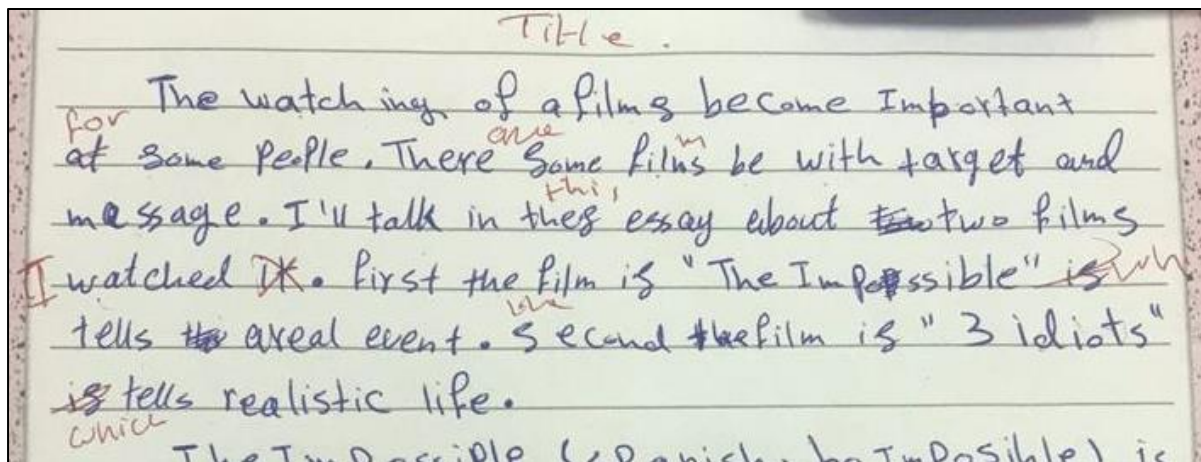 Title.
The watching of a films become Important
for
at some People. There are some films be with target and
message. I'll talk in thes this essay about two films
I watched it. first the film is "The Impossible" is wh
tells a real event. Second the film is "3 idiots"
is tells realistic life.
which
The Impossible (spanish: